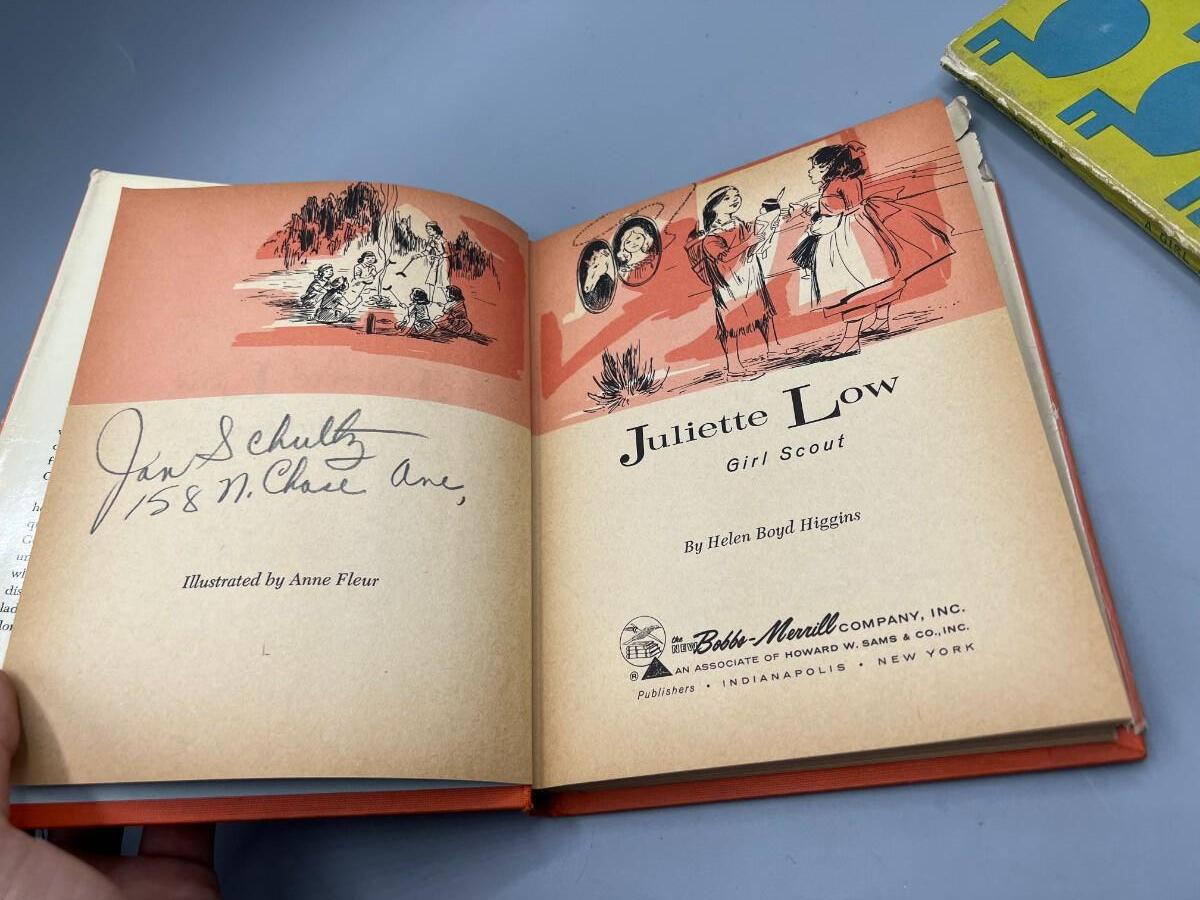 Jan Schultz
158 N. Chase Ave,
Illustrated by Anne Fleur
L
Juliette Low
Girl Scout
By Helen Boyd Higgins
the NEW Bobbs-Merrill COMPANY, INC.
AN ASSOCIATE OF HOWARD W. SAMS & CO., INC.
®
Publishers • INDIANAPOLIS • NEW YORK